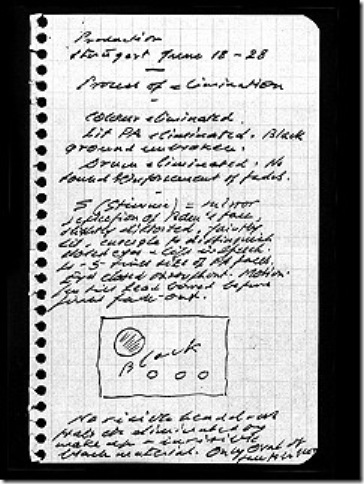 Production
Stuttgart June 18 - 28
Process of elimination
Colour eliminated.
Lit PA eliminated. Black
ground unbroken.
Drum eliminated. No
sound reinforcement of fades.
S (Stimme) = mirror
reflection of Pden's face,
slightly distorted, faintly
lit, enough to distinguish
closed eyes + lips in speech.
S twice size of PA faces.
Eyes closed throughout. Motion-
less till head bowed before
final fade-out.
Black
No visible headdress
Hair etc eliminated by
make up + invisible
black material. Only oval of